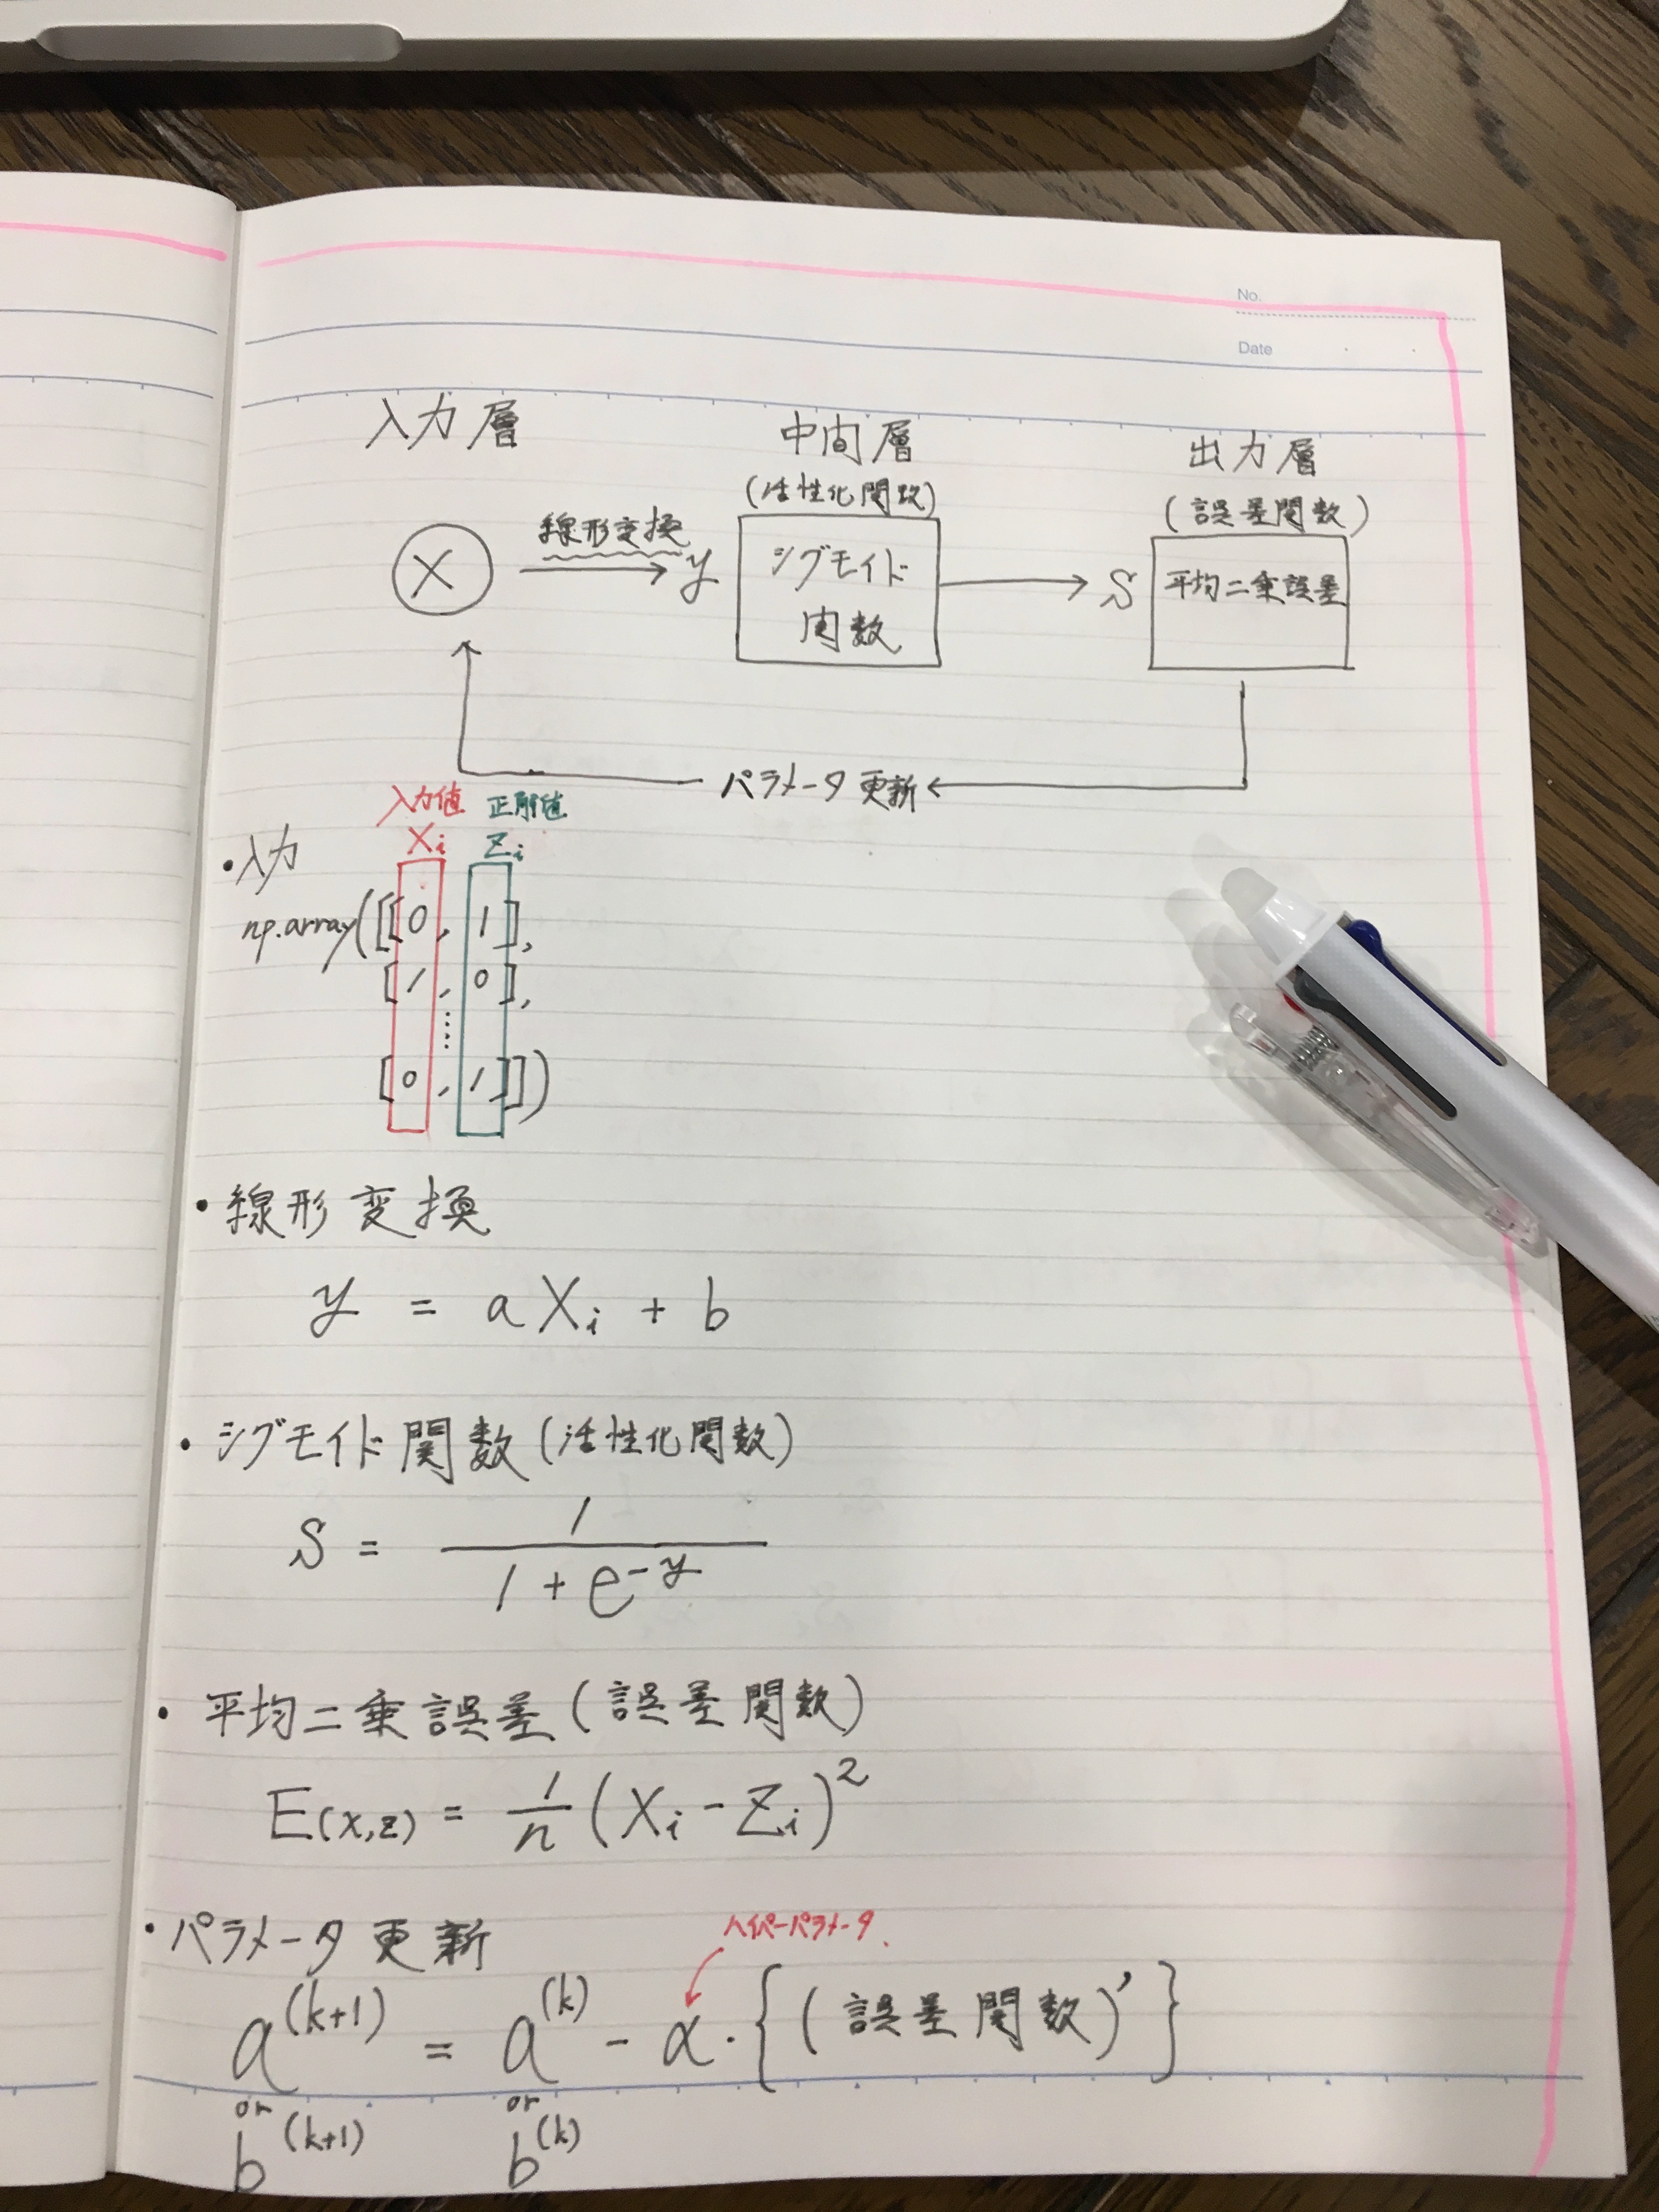 No.
Date
入力層 中間層 出力層
(活性化関数) (誤差関数)
X 線形変換 y シグモイド関数 S 平均二乗誤差
パラメータ更新
入力値 正解値
Xi Zi
・入力
np.array([[0, 1],
[1, 0],
⋮
[0, 1]])
・線形変換
y = aXi + b
・シグモイド関数(活性化関数)
S = 1 / (1 + e^-y)
・平均二乗誤差(誤差関数)
E(x,z) = 1/n (Xi - Zi)^2
・パラメータ更新
ハイパーパラメータ
a^(k+1) = a^(k) - α・{(誤差関数)'}
or or
b^(k+1) b^(k)